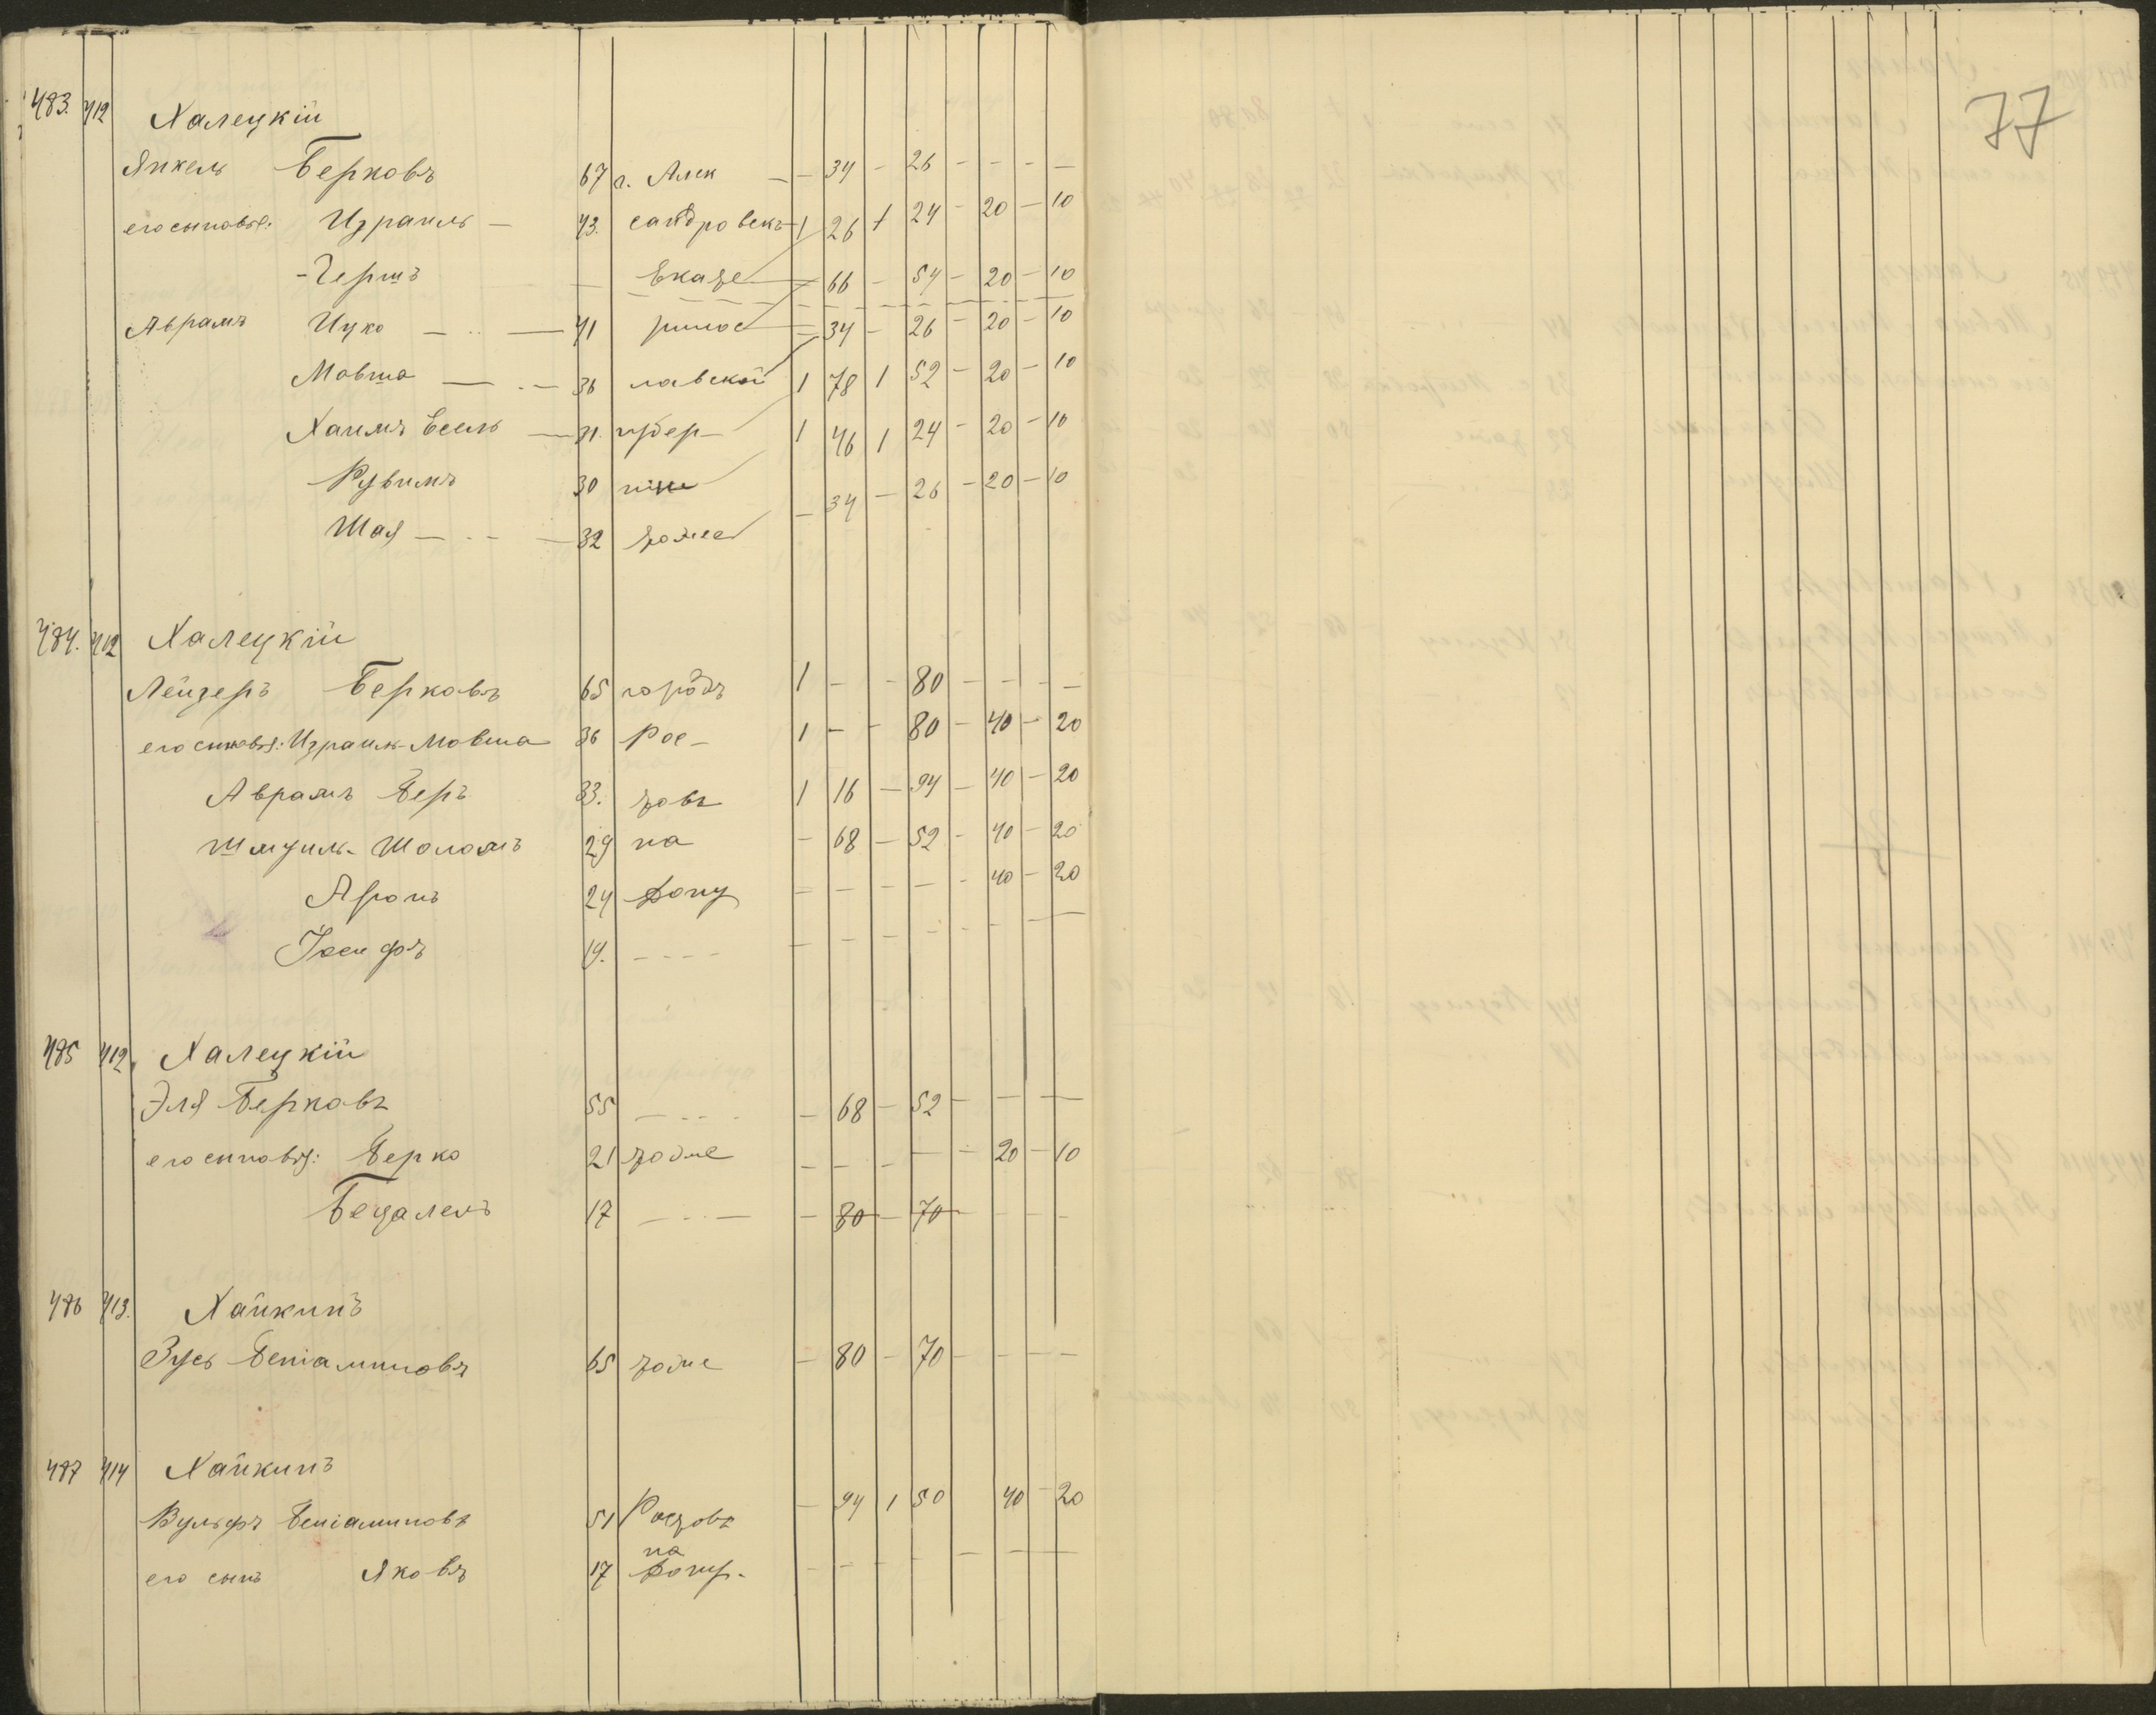 77
483. 412 Халецкій
Янкель Берковъ 67 г. Алек — — 34 — 26 — — — —
его сыновья: Израиль — 43. сандровскъ 1 26 1 24 — 20 — 10
— Гершъ — Екате — 66 — 54 — 20 — 10
Аврамъ Ицко — 41 ринос — 34 — 26 — 20 — 10
Мовша — 36 лавской 1 78 1 52 — 20 — 10
Хаимъ Есель — 31. губер— 1 46 1 24 — 20 — 10
Рувимъ 30 ніи — 34 — 26 — 20 — 10
Шая — 32 тоже
484. 412 Халецкій
Лейзеръ Берковъ 65 городъ 1 — — 80 — — — —
его сыновья: Израиль-Мовша 36 Рос— 1 — — 80 — 40 — 20
Аврамъ Беръ 33. товъ 1 16 — 94 — 40 — 20
Шмуиль-Шоломъ 29 на — 68 — 52 — 40 — 20
Аронъ 24 Дону — — — — — 40 — 20
Іосифъ 19. — — — — — — — — — — —
485 412 Халецкій
Эля Берковъ 55 — — — — 68 — 52 — — —
его сыновья: Берко 21 тоже — — — — — 20 — 10
Бецалель 17 — — — — 80 — 70 — — —
486 413. Хайкинъ
Зусь Беніаминовъ 65 тоже — 80 — 70 — — — —
487 414 Хайкинъ
Вульфъ Беніаминовъ 51 Ростовъ — 94 1 50 40 — 20
на
его сынъ Яковъ 17 Дону. — — — — — — —